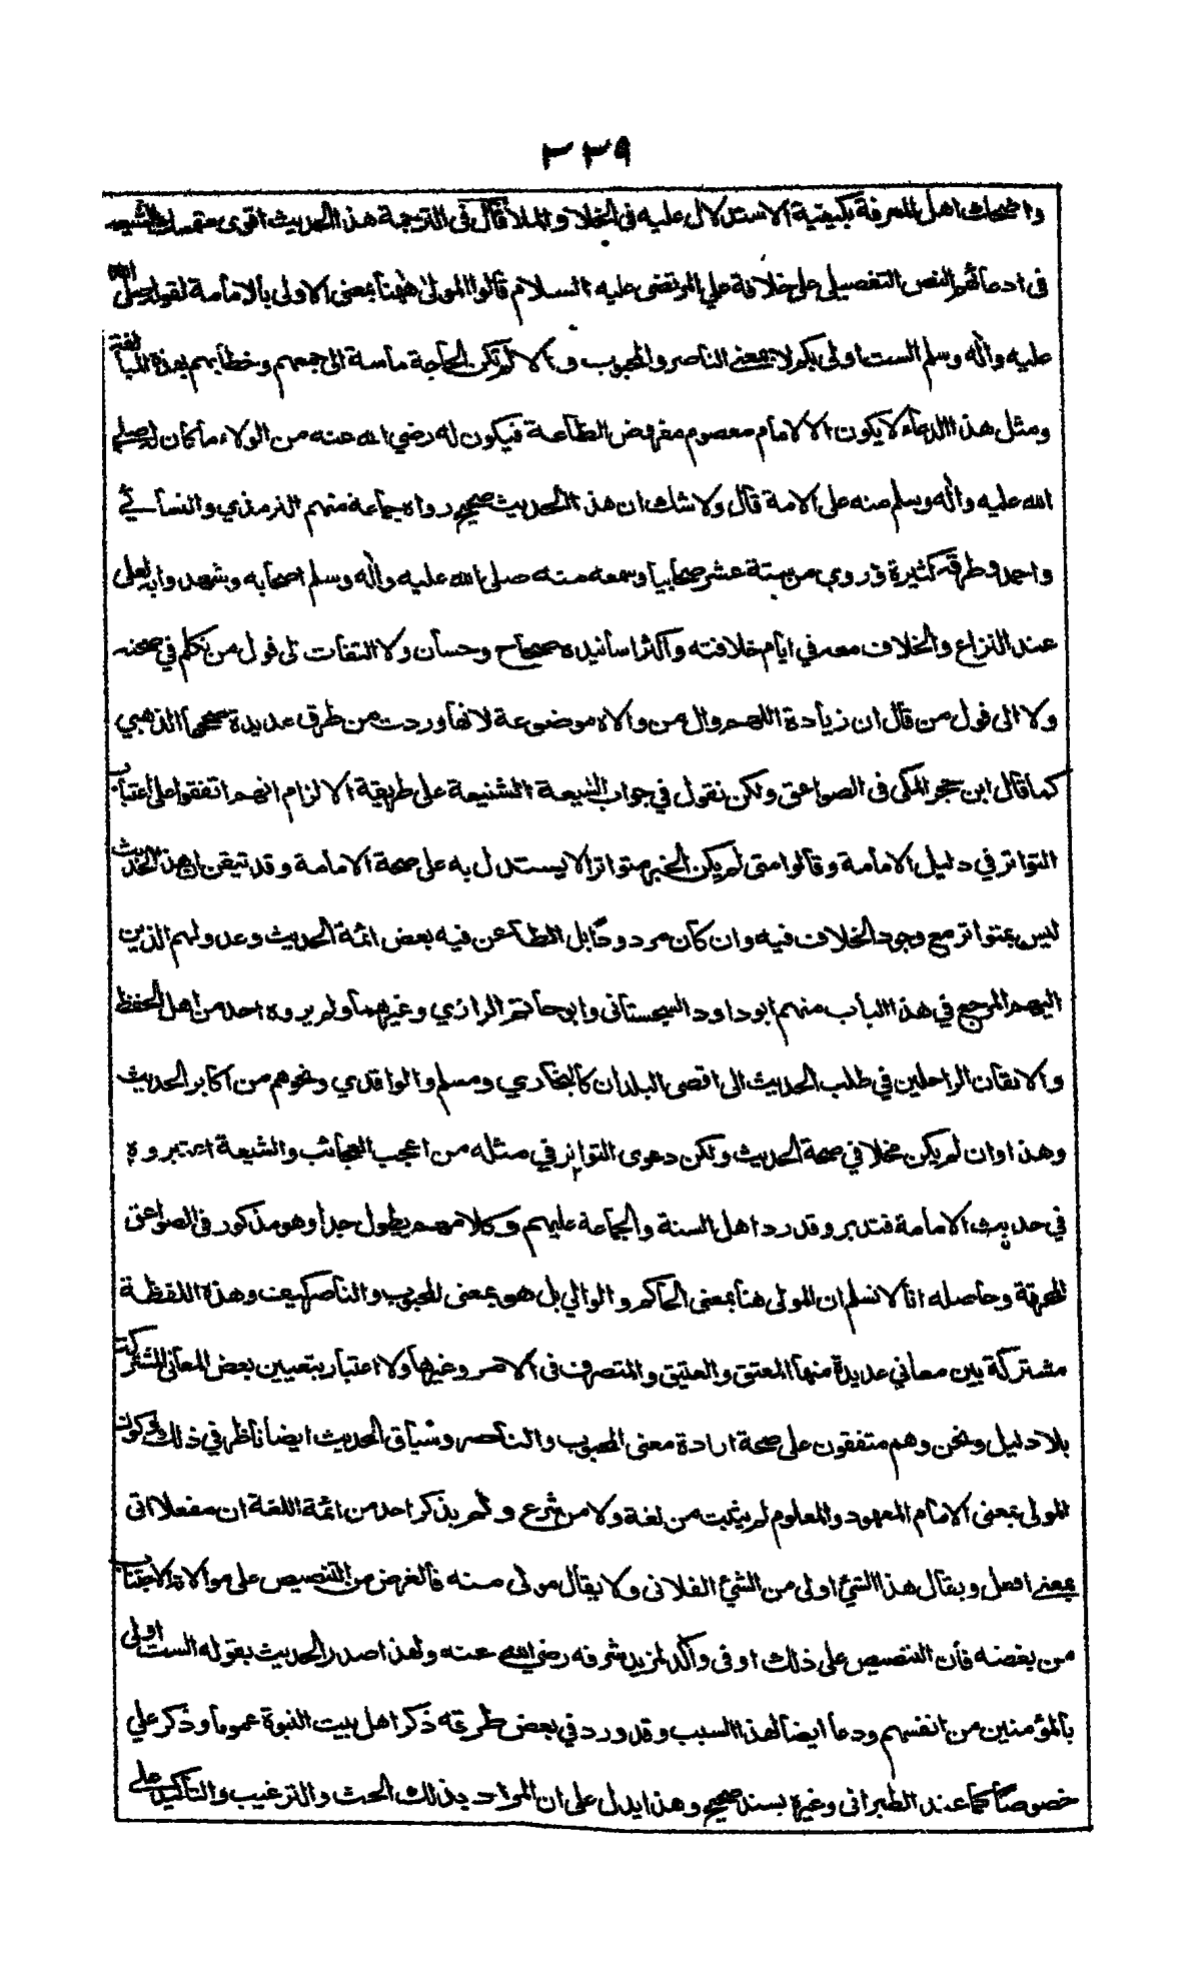 ٢٢٩
واضحاك اهل المعرفة بكيفية الاستدلال عليه في الخلا والملا قال في الترجمة هذا الحديث اقوى متمسك الشيعة
في ادعائهم النص التفصيلي على خلافة علي المرتضى عليه السلام قالوا المولى ههنا بمعنى الاولى بالامامة لقوله صلى الله
عليه واله وسلم الست اولى بكم لا بمعنى الناصر والمحبوب والا لم تكن الحاجة ماسة الى جمعهم وخطابهم بهذه المبالغة
ومثل هذا الدعاء لا يكون الا لامام معصوم مفترض الطاعة فيكون له رضي الله عنه من الولاء ما كان له صلى
الله عليه واله وسلم منه على الامة قال ولا شك ان هذا الحديث صحيح رواه جماعة منهم الترمذي والنسائي
واحمد وطرقه كثيرة وروي من ستة عشر صحابيا وسمعه منه صلى الله عليه واله وسلم اصحابه وشهدوا به لعلى
عند النزاع والخلاف معه في ايام خلافته واكثر اسانيده صحاح وحسان ولا التفات الى قول من تكلم في صحته
ولا الى قول من قال ان زيادة اللهم وال من والاه موضوعة لانها وردت من طرق عديدة صححها الذهبي
كما قال ابن حجر المكي في الصواعق ولكن نقول في جواب الشيعة الشنيعة على طريقة الالزام انهم اتفقوا على اعتبار
التواتر في دليل الامامة وقالوا متى لم يكن الخبر متواترا لا يستدل به على صحة الامامة وقد تيقن ان هذا الحديث
ليس بمتواتر مع وجود الخلاف فيه وان كان مردودا بل الطاعن فيه بعض ائمة الحديث وعدولهم الذين
اليهم المرجع في هذا الباب منهم ابوداود السجستاني وابي حاتم الرازي وغيرهما ولم يروه احد من اهل الحفظ
والاتقان الراحلين في طلب الحديث الى اقصى البلدان كالبخاري ومسلم والواقدي ونحوهم من اكابر الحديث
وهذا وان لم يكن مخلا في صحة الحديث ولكن دعوى التواتر في مثله من اعجب العجائب والشيعة اعتبروه
في حديث الامامة فتدبر وقد رد اهل السنة والجماعة عليهم وكلامهم يطول جدا وهو مذكور في الصواعق
المحرقة وحاصله انا لا نسلم ان المولى هنا بمعنى الحاكم والوالي بل هو بمعنى المحبوب والناصر كيف وهذه اللفظة
مشتركة بين معاني عديدة منها المعتق والعتيق والمتصرف في الامر وغيرها ولا اعتبار بتعيين بعض المعاني المشتركة
بلا دليل ونحن وهم متفقون على صحة ارادة معنى المحبوب والناصر وسياق الحديث ايضا ناظر في ذلك وكون
المولى بمعنى الامام المعهود والمعلوم لم يثبت من لغة ولا من شرع ولم يذكر احد من ائمة اللغة ان مفعلا اتى
بمعنى افعل ويقال هذا الشيء اولى من الشيء الفلاني ولا يقال مولى منه فالغرض من التنصيص على موالاة الاجتناب
من بغضه فان التنصيص على ذلك اوفى واكد لمزيد شرفه رضي الله عنه ولهذا صدر الحديث بقوله الست اولى
بالمؤمنين من انفسهم ودعا ايضا لهذا السبب وقد ورد في بعض طرقه ذكر اهل بيت النبوة عموما وذكر علي
خصوصا كما عند الطبراني وغيره بسند صحيح وهذا يدل على ان المراد بذلك الحث والترغيب والتاكيد على